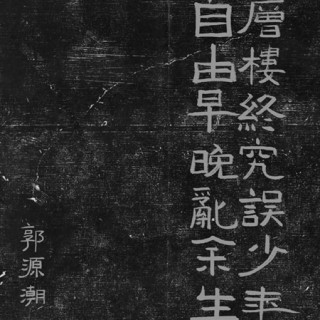 層樓終究誤少年
自由早晚亂余生
郭源潮